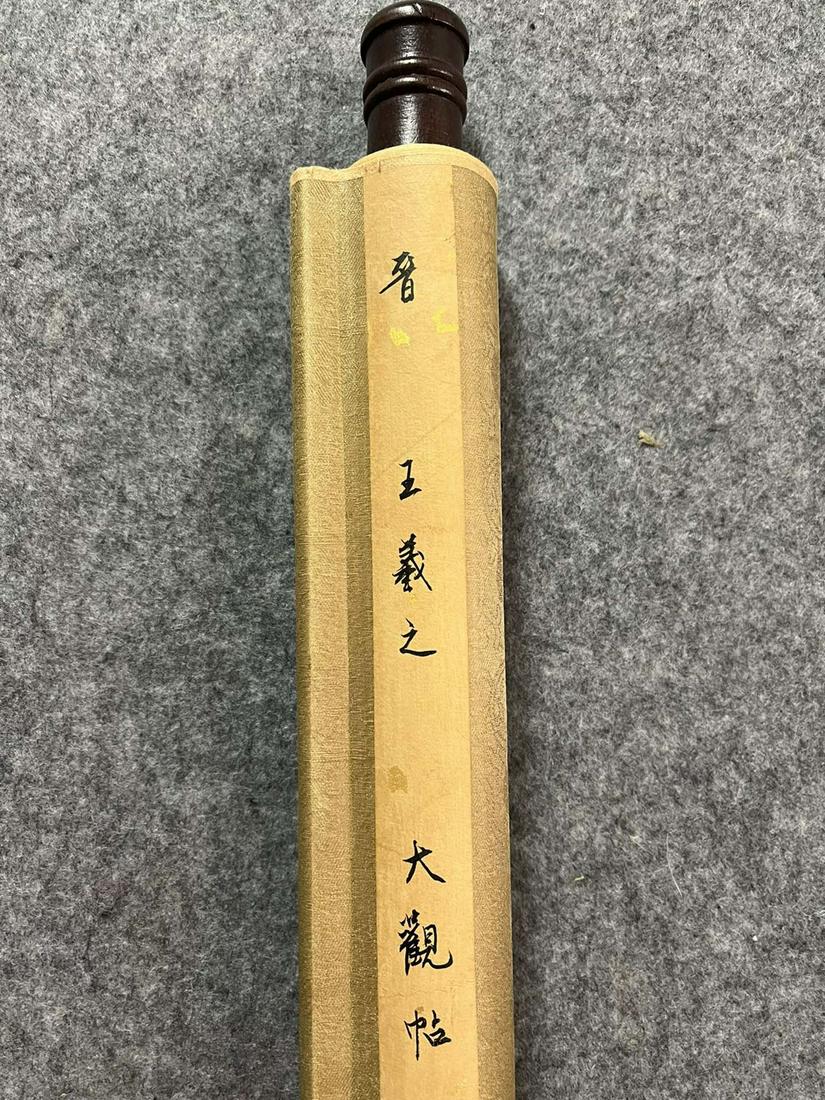 晉 王羲之 大觀帖